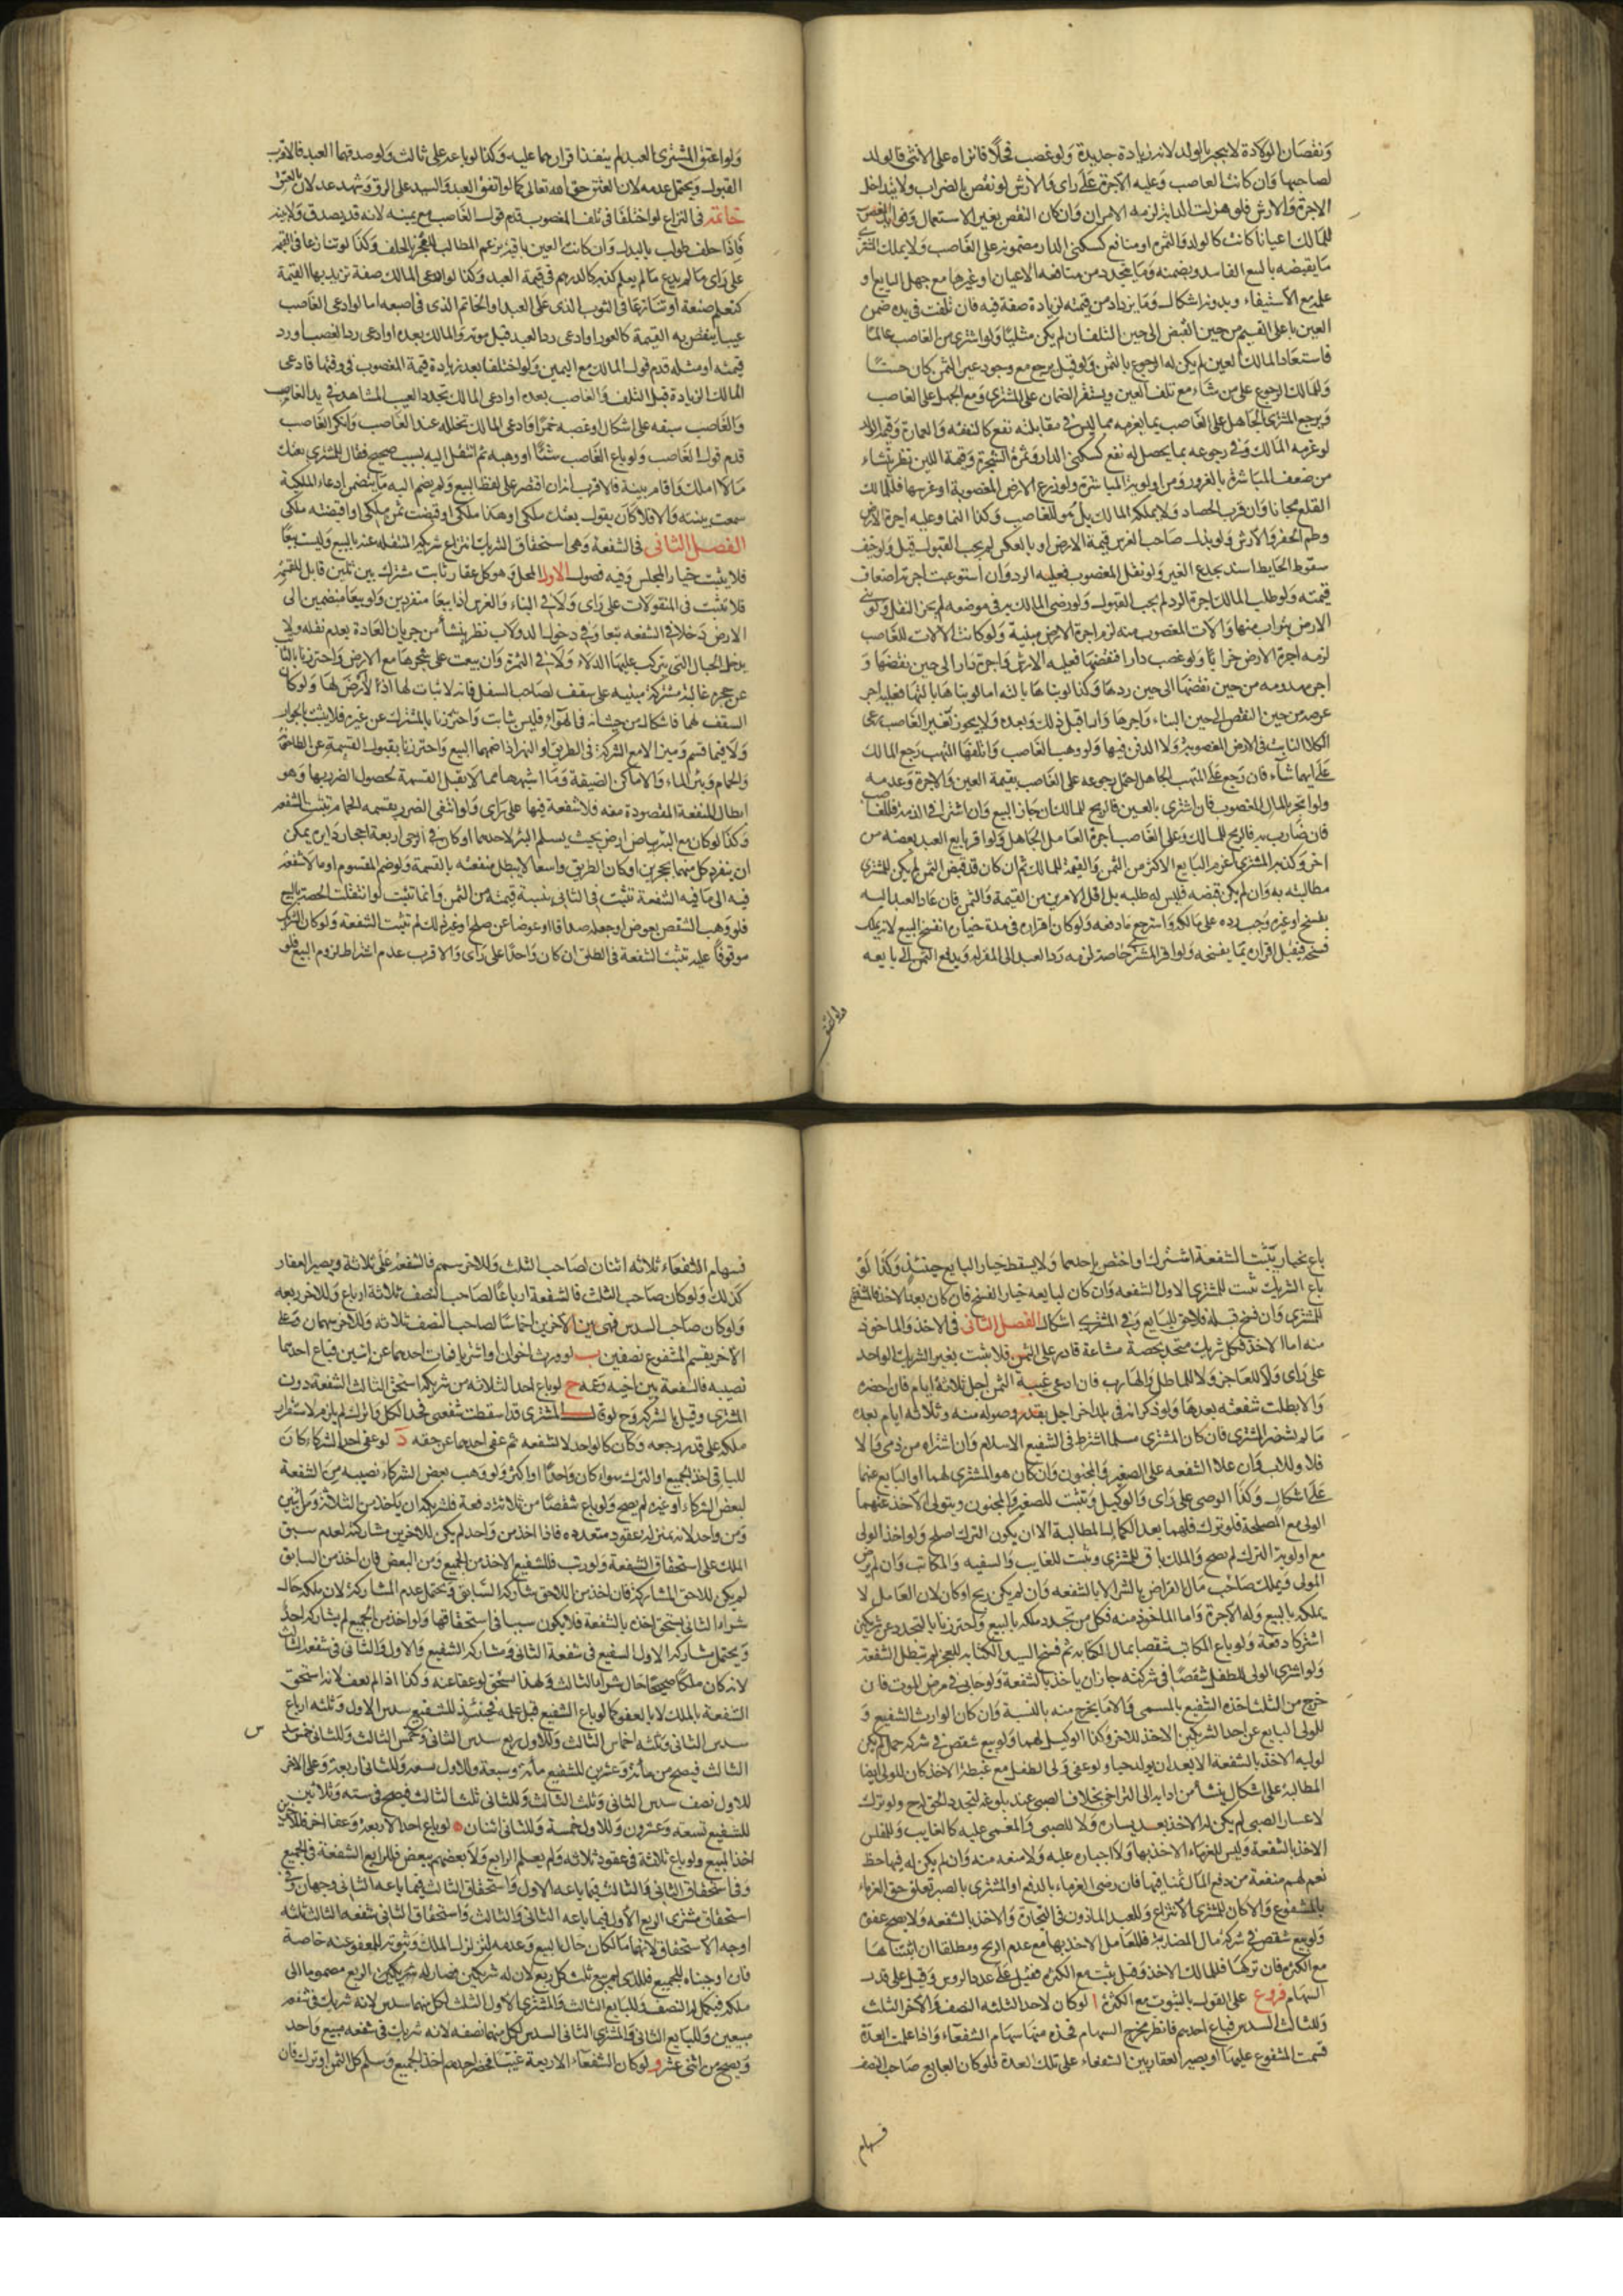 ونقصان الولادة لا يجبر بالولد لانه زيادة جديدة ولو غصب فحلا فانزاه على الانثى فالولد
لصاحبها وان كانت للغاصب وعليه الاجرة على راى والارش لو نقص بالضراب ولا يتداخل
الاجرة والارش فلو هزلت الدابة لزمه الامران وان كان النقص بغير الاستعمال وفوائد المغصوب
للمالك اعيانا كانت كالولد والثمرة او منافع كسكنى الدار مضمونة على الغاصب ولا يملك المشترى
ما يقبضه بالبيع الفاسد ويضمنه وما يتجدد من منافعه الاعيان او غيرها مع جهل البايع او
علمه مع الاستيفاء وبدونه اشكال وما يزداد من قيمته لزيادة صفة فيه فان تلفت فى يده ضمن
العين باعلى القيم من حين القبض الى حين التلف ان لم يكن مثليا ولو اشترى من الغاصب عالما
فاستعاد المالك العين لم يكن له الرجوع بالثمن ولو قيل يرجع مع وجود عين الثمن كان حسنا
وللمالك الرجوع على من شاء مع تلف العين ويستقر الضمان على المشترى ومع الجهل على الغاصب
ويرجع المشترى الجاهل على الغاصب بما يغرمه مما ليس فى مقابلته نفع كالنفقة والعمارة وقيمة الولد
لو غرمه المالك وفى رجوعه بما يحصل له نفع كسكنى الدار وثمرة الشجرة وقيمة اللبن نظر ينشاء
من ضعف المباشرة بالغرور ومن اولوية المباشرة ولو زرع الارض المغصوبة او غرسها فللمالك
القلع مجانا وان قرب الحصاد ولا يملكه المالك بل هو للغاصب وكذا النما وعليه اجرة الارض
وطم الحفر والارش ولو بذل صاحب الغرس قيمة الارض او بالعكس لم يجب القبول قيل ولو خيف
سقوط الحايط اسند بجذع الغير ولو نقل المغصوب فعليه الرد وان استوعبت اجرته اضعاف
قيمته ولو طلب المالك اجرة الرد لم يجب القبول ولو رضى المالك به فى موضعه لم يجز النقل ولو بنى
الارض بتراب منها والات المغصوب منه لزمه اجرة الارض مبنية ولو كانت الالات للغاصب
لزمه اجرة الارض خرابا ولو غصب دارا فنقضها فعليه الارش واجرة دار الى حين نقضها و
اجرة مهدومة من حين نقضها الى حين ردها وكذا لو بناها بالته اما لو بناها بالتها فعليه اجرة
عرصة من حين النقض الى حين البناء واجرها دارا قبل ذلك وبعده ولا يجوز لغير الغاصب رعى
الكلا النابت فى الارض المغصوبة ولا الدفن فيها ولو وهب الغاصب واتلفها المتهب رجع المالك
على ايهما شاء فان رجع على المتهب الجاهل احتمل رجوعه على الغاصب بقيمة العين والاجرة وعدمه
ولو اتجر بالمال المغصوب فان اشترى بالعين فالربح للمالك ان جاز البيع وان اشترى فى الذمة فللغاصب
فان ضارب به فالربح للمالك وعلى الغاصب اجرة العامل الجاهل ولو اقر بايع العبد بعصبه من
اخر وكذبه المشترى اغرم البايع الاكثر من الثمن والقيمة للمالك ثم ان كان قد قبض الثمن لم يكن للمشترى
مطالبته به وان لم يكن قبضه فليس له طلبه بل اقل الامرين من القيمة والثمن فان عاد العبد اليه
بفسخ او غيره وجب رده على مالكه واسترجع ما دفعه ولو كان اقراره فى مدة خياره انفسخ البيع لانه يملك
فسخه فيقبل اقراره بما يفسخه ولو اقر المشترى خاصة لزمه رد العبد الى المقر له ويدفع الثمن الى بايعه
ولو اعتق
ولو اعتق المشترى العبد لم ينفذ اقرارهما عليه وكذا لو باعه على ثالث ولو صدقهما العبد فالاقرب
القبول ويحتمل عدمه لان العتق حق الله تعالى كما لو اتفق العبد والسيد على الرق وشهد عدلان بالعتق
خاتمة فى النزاع لو اختلفا فى تلف المغصوب قدم قول الغاصب مع يمينه لانه قد يصدق ولا بينة
فاذا حلف طولب بالبدل وان كانت العين باقية بزعم المطالب للعجز بالحلف وكذا لو تنازعا فى القيمة
على راى ما لم يدع ما لم يعلم كذبه كالدرهم فى قيمة العبد وكذا لو ادعى المالك صفة تزيد بها القيمة
كتعلم صنعة او تنازعا فى الثوب الذى على العبد والخاتم الذى فى اصبعه اما لو ادعى الغاصب
عيبا ينقص به القيمة كالعور او ادعى رد العبد قبل موته والمالك بعده او ادعى رد الغصب او رد
قيمته او مثله قدم قول المالك مع اليمين ولو اختلفا بعد زيادة قيمة المغصوب فى وقتها فادعى
المالك الزيادة قبل التلف والغاصب بعده او ادعى المالك تجدد العيب المشاهد فى يد الغاصب
والغاصب سبقه على اشكال او غصبه خمرا وادعى المالك تخلله عند الغاصب وانكر الغاصب
قدم قول الغاصب ولو باع الغاصب شيئا او وهبه ثم انتقل اليه بسبب صحيح فقال للمشترى بعتك
ما لا املك واقام بينة فالاقرب انه ان اقتصر على لفظ البيع ولم يضم اليه ما يتضمن ادعاء الملكية
سمعت بينته والا فلا كان يقول بعتك ملكى او هذا ملكى او قبضت ثمن ملكى او اقبضته ملكى
الفصل الثانى فى الشفعة وهى استحقاق الشريك انتزاع شريكه المنتقلة عنه بالبيع وليست بيعا
فلا يثبت خيار المجلس وفيه فصول الاول المحل وهو كل عقار ثابت مشترك بين اثنين قابل للقسمة
فلا تثبت فى المنقولات على راى ولا فى البناء والغرس اذا بيعا منفردين ولو بيعا منضمين الى
الارض دخلا فى الشفعة تبعا وفى دخول الدولاب نظر ينشأ من جريان العادة بعدم نقله ولا
يدخل الحبال التى يتركب عليها الدلاء ولا فى الثمرة وان بيعت على شجرها مع الارض واحترزنا بالثابت
عن حجرة عالية مشتركة مبنية على سقف لصاحب السفل فانه لا ثبات لها اذ لا ارض لها ولو كان
السقف لهما فاشكال من حيث انه فى الهواء فليس بثابت واحترزنا بالمشترك عن غيره فلا يثبت بالجوار
ولا فيما قسم وميز الا مع الشركة فى الطريق او النهر اذا ضمهما البيع واحترزنا بقبول القسمة عن الطاحونة
والحمام وبئر الماء والاماكن الضيقة وما اشبهها مما لا يقبل القسمة لحصول الضرر بها وهو
ابطال المنفعة المقصودة منه فلا شفعة فيها على راى ولو انتفى الضرر بقسمة الحمام تثبت الشفعة
وكذا لو كان مع البئر بياض ارض بحيث يسلم البئر لاحدهما او كان فى الرحى اربعة احجار دايرة يمكن
ان ينفرد كل منهما بحجرين او كان الطريق واسعا لا يبطل منفعته بالقسمة ولو ضم المقسوم او ما لا شفعة
فيه الى ما فيه الشفعة تثبت فى الثانى بنسبة قيمته من الثمن وانما تثبت لو انتقلت الحصة بالبيع
فلو وهب الشقص بعوض او جعله صداقا او عوضا عن صلح او غير ذلك لم تثبت الشفعة ولو كان الشرك
موقوفا عليه تثبت الشفعة فى الطلق ان كان واحدا على راى والاقرب عدم اشتراط لزوم البيع فلو
باع بخيار تثبت الشفعة اشترك او اختص باحدهما ولا يسقط خيار البايع حينئذ وكذا لو
باع الشريك ثبت للمشترى الاول الشفعة وان كان لبايعه خيار الفسخ فان كان بعد الاخذ فالشفعة
للمشترى وان فسخ قبله فلا حق للبايع وفى المشترى اشكال الفصل الثانى فى الاخذ والماخوذ
منه اما الاخذ فكل شريك متحد بحصة مشاعة قادر على الثمن فلا يثبت بغير الشريك الواحد
على راى ولا للعاجز ولا المماطل والهارب فان ادعى غيبة الثمن اجل ثلاثة ايام فان احضره
والا بطلت شفعته بعدها ولو ذكر انه فى بلد اخر اجل بقدر وصوله منه وثلاثة ايام بعده
ما لم يستضر المشترى فان كان المشترى مسلما اشترط فى الشفيع الاسلام وان اشتراه من ذمى والا
فلا وللاب وان علا الشفعة على الصغير والمجنون وان كان هو المشترى لهما او البايع عنهما
على اشكال وكذا الوصى على راى والوكيل وتثبت للصغير والمجنون ويتولى الاخذ عنهما
الولى مع المصلحة فلو ترك فلهما بعد الكمال المطالبة الا ان يكون الترك اصلح ولو اخذ الولى
مع اولوية الترك لم يصح والملك باق للمشترى وتثبت للغايب والسفيه والمكاتب وان لم يرض
المولى ويملك صاحب مال القراض بالشراء لا بالشفعة وان لم يكن ربح او كان لان العامل لا
يملكه بالبيع وله الاجرة واما الماخوذ منه فكل من تجدد ملكه بالبيع واحترزنا بالتجدد عن شريكين
اشتركا دفعة ولو باع المكاتب شقصا بمال الكتابة ثم فسخ السيد الكتابة للعجز لم تبطل الشفعة
ولو اشترى الولى للطفل شقصا فى شركته جاز ان ياخذ بالشفعة ولو حابى فى مرض الموت فان
خرج من الثلث اخذه الشفيع بالمسمى والا ما يخرج منه بالنسبة وان كان الوارث الشفيع و
للولى البايع عن احد الشريكين الاخذ للاخر وكذا الوكيل لهما ولو بيع شقص فى شركة حمل لم يكن
لوليه الاخذ بالشفعة الا بعد ان يولد حيا ولو عفى ولى الطفل مع غبطة الاخذ كان للولى ايضا
المطالبة على اشكال ينشأ من ادائه الى التراخى بخلاف الصبى عند بلوغه لتجدد الحق له ح ولو ترك
لاعسار الصبى لم يكن له الاخذ بعد يساره ولا للصبى والمغمى عليه كالغايب وللمفلس
الاخذ بالشفعة وليس للغرماء الاخذ بها ولا اجباره عليه ولا منعه منه وان لم يكن له فيها حظ
نعم لهم منعه من دفع المال ثمنا فيها فان رضى الغرماء بالدفع او المشترى بالصبر تعلق حق الغرماء
بالمشفوع والا كان للمشترى الانتزاع وللعبد الماذون فى التجارة الاخذ بالشفعة ولا يصح عفوه
ولو بيع شقص فى شركة مال المضاربة فللعامل الاخذ بها مع عدم الربح ومطلقا ان اثبتناها
مع الكثرة فان تركها فللمالك الاخذ وهل يثبت مع الكثرة فقيل على عدد الروس وقيل على قدر
السهام فروع على القول بالثبوت مع الكثرة ا لو كان لاحد الثلثة النصف وللاخر الثلث
وللثالث السدس فباع احدهم فانظر مخرج السهام فخذ منها سهام الشفعاء واذا علمت العدة
قسمت المشفوع عليها او يصير العقار بين الشفعاء على تلك العدة فلو كان البايع صاحب النصف
فسهام
فسهام الشفعاء ثلاثة اثنان لصاحب الثلث وللاخر سهم فالشفعة على ثلاثة ويصير العقار
كذلك ولو كان صاحب الثلث فالشفعة ارباعا لصاحب النصف ثلاثة ارباع وللاخر ربعه
ولو كان صاحب السدس فهى بين الاخرين اخماسا لصاحب النصف ثلاثة وللاخر سهمان وعلى
الاخر يقسم المشفوع نصفين ب لو ورث اخوان او اشتريا فمات احدهما عن اثنين فباع احدهما
نصيبه فالشفعة بين اخيه وعمه ج لو باع احد الثلاثة من شريكه استحق الثالث الشفعة دون
المشترى وقيل بالشركة وح لو قال المشترى قد اسقطت شفعتى فخذ الكل واترك لم يلزم لاستقرار
ملكه على قدر حقه وكان كالواحد لا لشفعة ثم عفى احدهما عن حقه د لو عفى احد الشركاء كان
للباقى اخذ الجميع او الترك سواء كان واحدا او اكثر ولو وهب بعض الشركاء نصيبه من الشفعة
لبعض الشركاء او غيره لم يصح ولو باع شقصا من ثلاثة دفعة فلشريكه ان ياخذ من الثلاثة ومن اثنين
ومن واحد لانه بمنزلة عقود متعددة فاذا اخذ من واحد لم يكن للاخرين مشاركته لعدم سبق
الملك على استحقاق الشفعة ولو رتب فللشفيع الاخذ من الجميع ومن البعض فان اخذ من السابق
لم يكن للاحق المشاركة فان اخذ من اللاحق شاركه السابق ويحتمل عدم المشاركة لان ملكه حال
شراء الثانى يستحق اخذه بالشفعة فلا يكون سببا فى استحقاقها ولو اخذ من الجميع لم يشاركه احد
ويحتمل مشاركة الاول الشفيع فى شفعة الثانى ومشاركة الشفيع والاول والثانى فى شفعة الثالث
لانه كان ملكا صحيحا حال شراء الثالث ولهذا يستحق لو عفا عنه وكذا اذا لم يعف لانه استحق
الشفعة بالملك لا بالعفو كما لو باع الشفيع قبل علمه فحينئذ للشفيع سدس الاول وثلثه ارباع
سدس الثانى وثلثه اخماس الثالث وللاول ربع سدس الثانى وخمس الثالث وللثانى خمس
الثالث فيصح من مائة وعشرين للشفيع مائة وسبعة وللاول تسعة وللثانى اربعة وعلى الاخر
للاول نصف سدس الثانى وثلث الثالث وللثانى ثلث الثالث فيصح من ستة وثلاثين
للشفيع تسعة وعشرون وللاول خمسة وللثانى اثنان ه لو باع احد الاربعة وعفا اخر فللاخرين
اخذ المبيع ولو باع ثلاثة فى عقود ثلاثة ولم يعلم الرابع ولا بعضهم ببعض فللرابع الشفعة فى الجميع
وفى استحقاق الثانى والثالث فيما باعه الاول واستحقاق الثالث فيما باعه الثانى وجهان وفى
استحقاق مشترى الربع الاول فيما باعه الثانى والثالث واستحقاق الثانى شفعة الثالث ثلثة
اوجه الاستحقاق لانهما مالكان حال البيع وعدمه لتزلزل الملك وثبوته للمعفو عنه خاصة
فان اوجبناه للجميع فللذى لم يبع ثلث كل ربع لان له شريكين فصار له شريكين الربع مضموما الى
ملكه فيكمل له النصف وللبايع الثالث والمشترى الاول الثلث لكل منهما سدس لانه شريك فى شفعة
مبيعين وللبايع الثانى والمشترى الثانى السدس لكل منهما نصفه لانه شريك فى شفعة مبيع واحد
ويصح من اثنى عشر و لو كان الشفعاء الاربعة غيبا فحضر احدهم اخذ الجميع وسلم كل الثمن او ترك فان